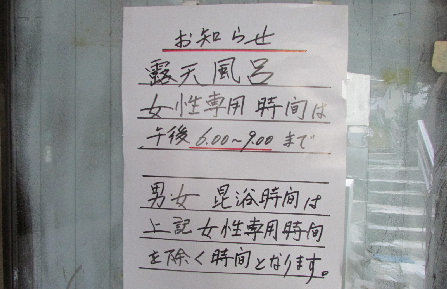 お知らせ
露天風呂
女性専用時間は
午後6.00~9.00まで
男女 昆浴時間は
上記女性専用時間
を除く時間となります。